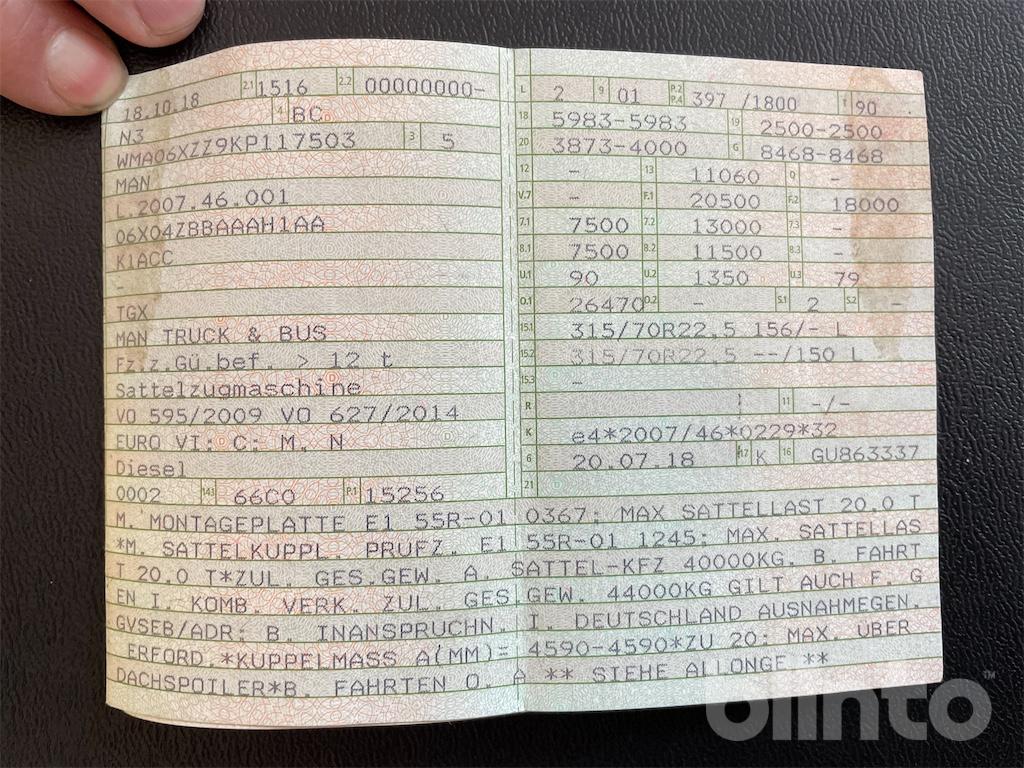 18.10.18 2.1 1516 2.2 00000000-
N3 4 BC
WMA06XZZ9KP117503 3 5
MAN
L.2007.46.001
06X04ZBBAAAH1AA
K1ACC
-
TGX
MAN TRUCK & BUS
Fz.z.Gü.bef. > 12 t
Sattelzugmaschine
VO 595/2009 VO 627/2014
EURO VI; C; M, N
Diesel
0002 14.1 66C0 P.1 15256
L 2 9 01 P.2 P.4 397 /1800 T 90
18 5983-5983 19 2500-2500
20 3873-4000 G 8468-8468
12 - 13 11060 Q -
V.7 - F.1 20500 F.2 18000
7.1 7500 7.2 13000 7.3 -
8.1 7500 8.2 11500 8.3 -
U.1 90 U.2 1350 U.3 79
O.1 26470 O.2 - S.1 2 S.2 -
15.1 315/70R22.5 156/- L
15.2 315/70R22.5 --/150 L
15.3 -
R 11 -/-
K e4*2007/46*0229*32
6 20.07.18 17 K 16 GU863337
21
M. MONTAGEPLATTE E1 55R-01 0367; MAX SATTELLAST 20.0 T
*M. SATTELKUPPL. PRUFZ. E1 55R-01 1245; MAX. SATTELLAS
T 20.0 T*ZUL. GES.GEW. A. SATTEL-KFZ 40000KG. B. FAHRT
EN I. KOMB. VERK. ZUL. GES.GEW. 44000KG GILT AUCH F. G
GVSEB/ADR; B. INANSPRUCHN. I. DEUTSCHLAND AUSNAHMEGEN.
ERFORD.*KUPPELMASS A(MM)= 4590-4590*ZU 20: MAX. UBER
DACHSPOILER*B. FAHRTEN O. A ** SIEHE ALLONGE **
blinto™